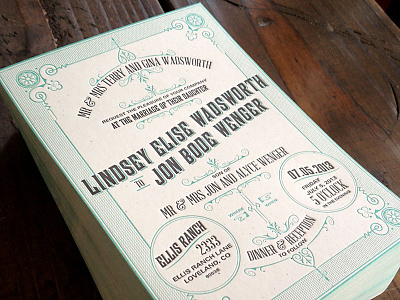 MR & MRS TERRY AND GINA WADSWORTH
REQUEST THE PLEASURE OF YOUR COMPANY
AT THE MARRIAGE OF THEIR DAUGHTER
LINDSEY ELISE WADSWORTH
TO
JON BODE WENGER
SON OF
MR & MRS JON AND ALYCE WENGER
ELLIS RANCH
2333
ELLIS RANCH LANE
LOVELAND, CO
07.05.2013
FRIDAY
JULY 5, 2013
5 O'CLOCK
IN THE EVENING
DINNER & RECEPTION
TO FOLLOW